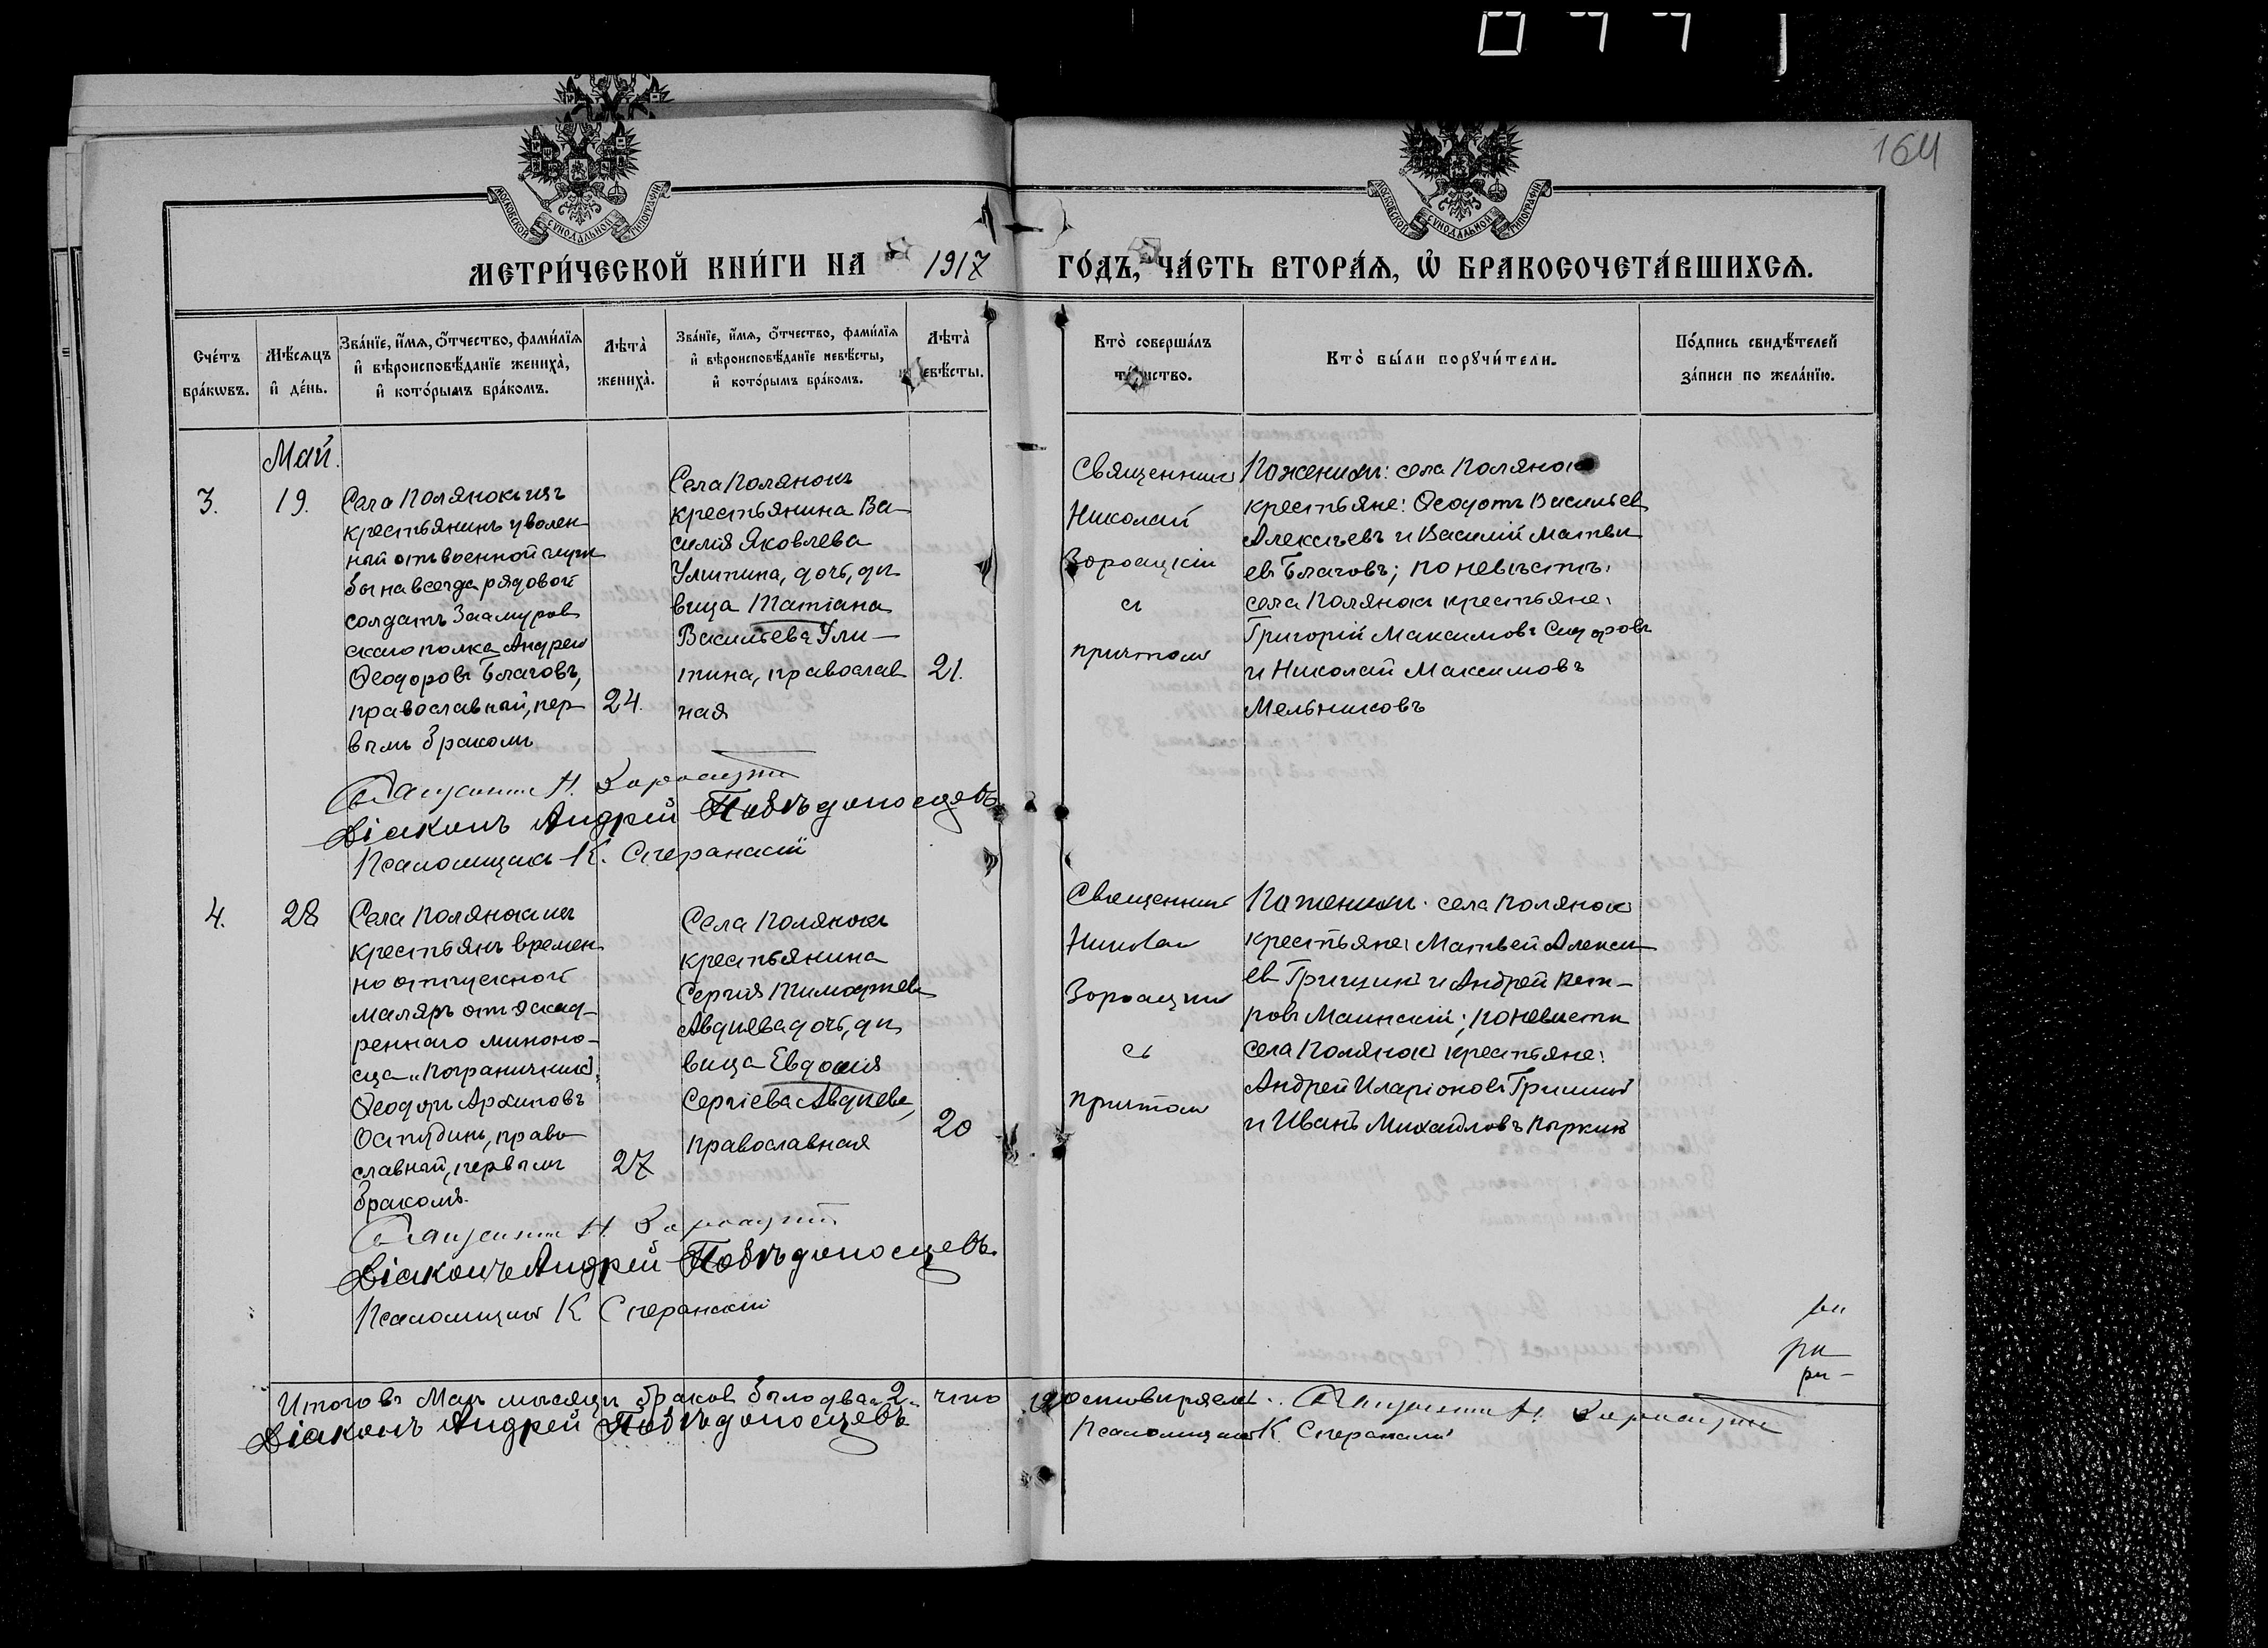 164
МОСКОВСКОЙ СѴНОДАЛЬНОЙ ТИПОГРАФІИ
МОСКОВСКОЙ СѴНОДАЛЬНОЙ ТИПОГРАФІИ
МЕТРИ́ЧЕСКОЙ КНИ́ГИ НА 1917 ГО́ДЪ, ЧА́СТЬ ВТОРА́Ѧ, Ѽ БРАКОСОЧЕТА́ВШИХСѦ.
Сче́тъ
бра́кѡвъ.
Мѣ́сѧцъ
и҆ де́нь.
Зва́нїе, и҆́мѧ, ѻ҆́тчество, фами́лїѧ
и҆ вѣроисповѣ́данїе жениха̀,
и҆ кото́рымъ бра́комъ.
Лѣта̀
жениха̀.
Зва́нїе, и҆́мѧ, ѻ҆́тчество, фами́лїѧ
и҆ вѣроисповѣ́данїе невѣ́сты,
и҆ кото́рымъ бра́комъ.
Лѣта̀
невѣ́сты.
Кто̀ соверша́лъ
та́инство.
Кто̀ бы́ли порꙋчи́тели.
По́дпись свидѣ́телей
за́писи по жела́нїю.
Май.
3.
19.
Села Полянокъ изъ
крестьянинъ уволен
ный отъ военной служ
бы навсегда рядовой
солдатъ Заамуров
скаго полка Андрей
Ѳеодоровъ Благовъ,
православный, пер
вымъ бракомъ
24.
Села Полянокъ
крестьянина Ва
силія Яковлева
Улитина, дочь, дѣ
вица Татіана
Васильева Ули—
тина, православ
ная
21.
Священникъ
Николай
Зороацкій
съ
причтомъ
По женихѣ: села Полянокъ
крестьяне: Ѳеодотъ Васильев
Алексѣевъ и Василій Матвѣ
евъ Благовъ; по невѣстѣ:
села Полянокъ крестьяне:
Григорій Максимовъ Сидоровъ
и Николай Максимовъ
Мельниковъ
Священникъ Н. Зороацкій
Діаконъ Андрей Побѣдоносцевъ
Псаломщикъ К. Сперанскій
4.
28
Села Полянокъ изъ
крестьянъ времен
но отпускной
маляръ отъ эскад—
реннаго миноно—
сца „Пограничникъ“
Ѳеодоръ Архиповъ
православный, первымъ
бракомъ.
27
Села Полянокъ
крестьянина
Сергія Тимоѳеева
Авдѣева дочь, дѣ
вица Евдокія
Сергіева Авдѣева,
православная
20
Священникъ
Николай
Зороацкій
съ
причтомъ
По женихѣ: села Полянокъ
крестьяне: Матвей Алексѣ
евъ Гришинъ и Андрей Пет—
ровъ Маинскій; по невѣстѣ
села Полянокъ крестьяне:
Андрей Иларіоновъ Гришинъ
и Иванъ Михайловъ Пыркинъ
Священникъ Н. Зороацкій
Діаконъ Андрей Побѣдоносцевъ.
Псаломщикъ К Сперанскій
Итого въ Маѣ мѣсяцѣ браковъ было два „2„ что удостовѣряемъ: Священникъ Н. Зороацкій
Діаконъ Андрей Побѣдоносцевъ
Псаломщикъ К. Сперанскій